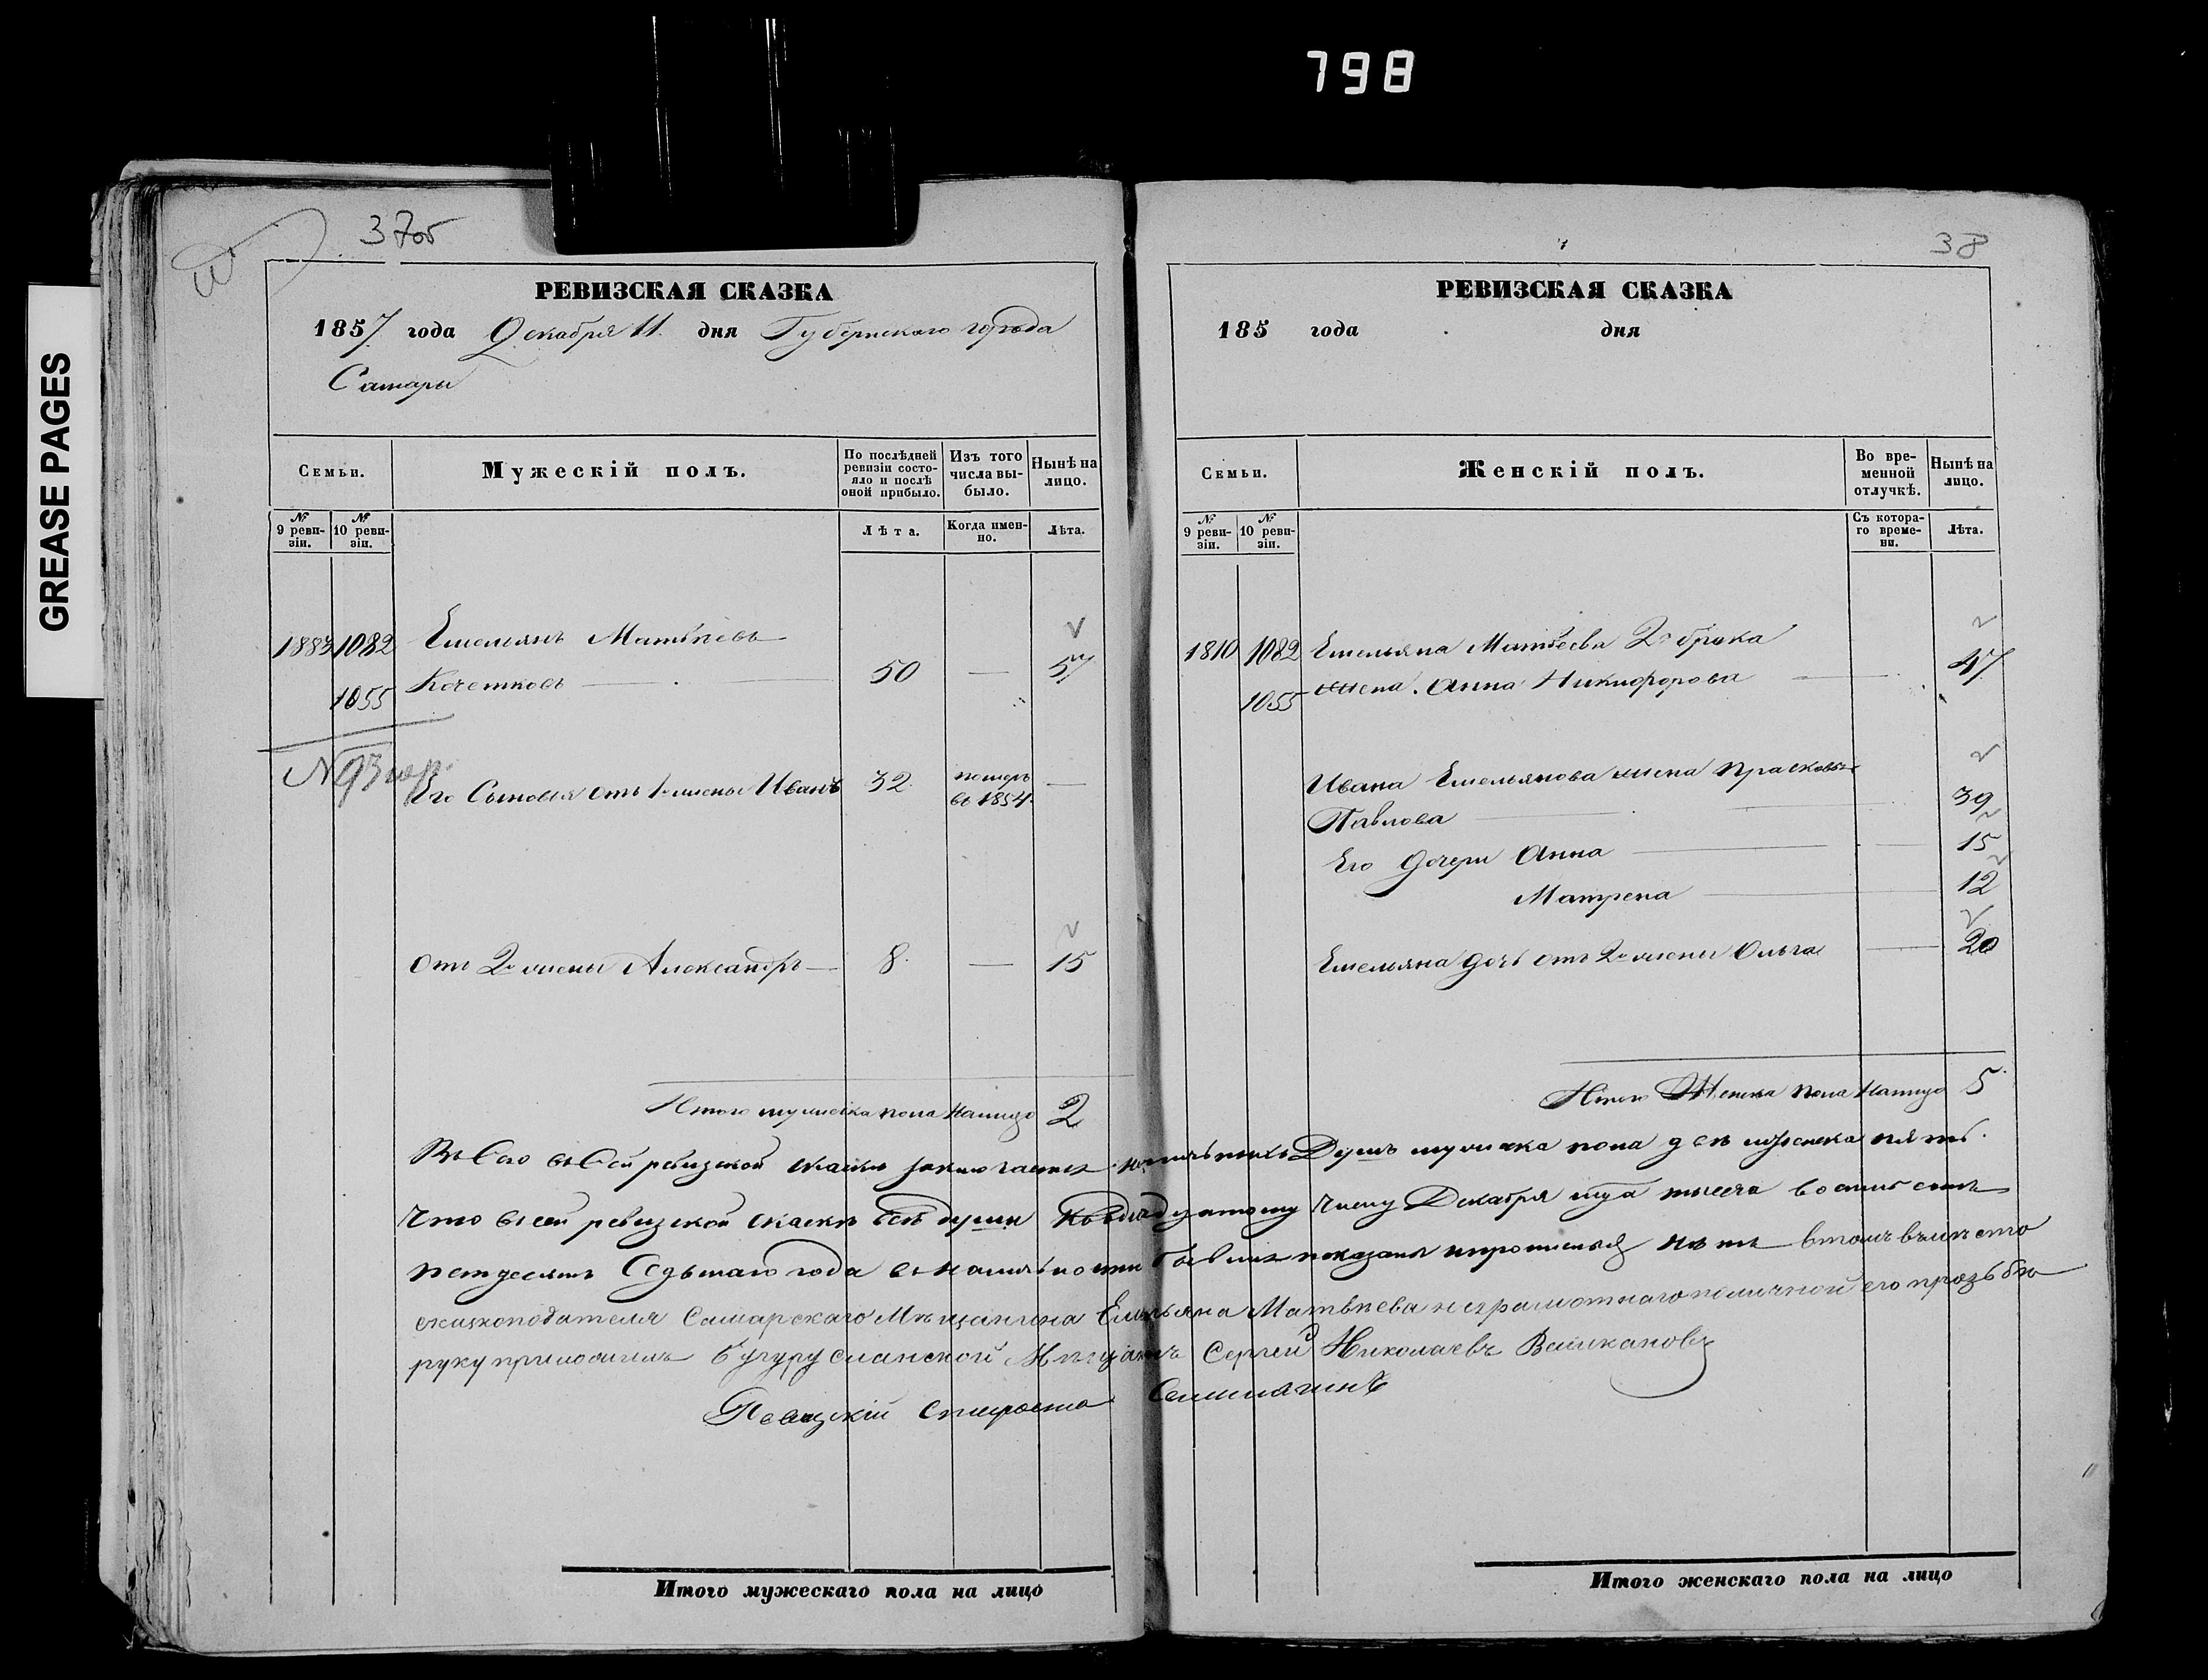 798
GREASE PAGES
37об
РЕВИЗСКАЯ СКАЗКА
1857 года Декабря 11 дня Губернскаго города
Самары
Семьи.
Мужескій полъ.
По послѣдней ревизіи состо-
яло и послѣ оной прибыло.
Изъ того числа вы-
было.
Нынѣ на лицо.
№ 9 реви-
зіи.
№ 10 реви-
зіи.
Лѣта.
Когда имен-
но.
Лѣта.
1883 1082 Емельянъ Матвѣевъ
1055 Кочетковъ 50 — 57
N 93
Его Сыновья отъ 1й жены Иванъ 32 померъ въ 1854 —
Отъ 2й жены Александръ 8 — 15
Итого мужеска пола налицо 2
38
РЕВИЗСКАЯ СКАЗКА
185 года дня
Семьи.
Женскій полъ.
Во вре-
менной отлучкѣ.
Нынѣ на лицо.
№ 9 реви-
зіи.
№ 10 реви-
зіи.
Съ котора-
го време-
ни.
Лѣта.
1810 1082 Емельяна Матвеева 2го брака
1055 жена Анна Никифорова 47
Ивана Емельянова жена Прасковья
Павлова 39
Его дочери Анна 15
Матрена 12
Емельяна дочь отъ 2й жены Ольга 20
Итого Женска пола налицо 5
Всего въ Сей ревизской сказкѣ заключается наличныхъ Душъ мужска пола две женска пять.
Что въ сей ревизской сказкѣ всѣ души Декабря тысяча восимь сотъ
петдесятъ Седьмаго года въ наличности бывшие показаны и прописныхъ нетъ втомъ вместо
сказкоподателя Самарскаго Мѣщанина Емельяна Матвѣева неграмотнаго поличной его прозьбѣ
руку приложилъ Бугурусланской Мѣщанинъ Сергей Николаевъ Великановъ
Староста
Итого мужескаго пола на лицо
Итого женскаго пола на лицо